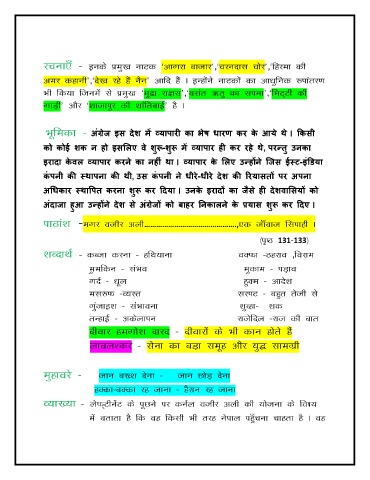 रचनाएँ – इनके प्रमुख नाटक 'आगरा बाजार','चरनदास चोर','हिरमा की
अमर कहानी','देख रहे हैं नैन' आदि हैं । इन्होंने नाटकों का आधुनिक रूपांतरण
भी किया जिनमें से प्रमुख 'मुद्रा राक्षस','बसंत ऋतु का सपना','मिट्टी की
गाड़ी' और 'शाजापुर की शांतिबाई' है ।
भूमिका – अंग्रेज इस देश में व्यापारी का भेष धारण कर के आये थे । किसी
को कोई शक न हो इसलिए वे शुरू-शुरू में व्यापार ही कर रहे थे, परन्तु उनका
इरादा केवल व्यापार करने का नहीं था । व्यापार के लिए उन्होंने जिस ईस्ट-इंडिया
कंपनी की स्थापना की थी, उस कंपनी ने धीरे-धीरे देश की रियासतों पर अपना
अधिकार स्थापित करना शुरू कर दिया । उनके इरादों का जैसे ही देशवासियों को
अंदाजा हुआ उन्होंने देश से अंग्रेजों को बाहर निकालने के प्रयास शुरू कर दिए ।
पाठांश –मगर वजीर अली..........................................,एक जाँबाज सिपाही ।
(पृष्ठ 131-133)
शब्दार्थ – कब्जा करना – हथियाना वक्फा –ठहराव ,विराम
मुमकिन – संभव मुकाम – पड़ाव
गर्द – धूल हुक्म – आदेश
मसरूफ –व्यस्त सरपट – बहुत तेजी से
गुंजाइश – संभावना शुब्हा– शक
तन्हाई – अकेलापन राजेदिल –राज की बात
दीवार हमगोश दारद – दीवारों के भी कान होते हैं
लावलश्कर – सेना का बड़ा समूह और युद्ध सामग्री
मुहावरे – जान बख्श देना – जान छोड़ देना
हक्का-बक्का रह जाना – हैरान रह जाना
व्याख्या – लेफ्टीनेंट के पूछने पर कर्नल वजीर अली की योजना के विषय
में बताता है कि वह किसी भी तरह नेपाल पहुँचना चाहता है । वह